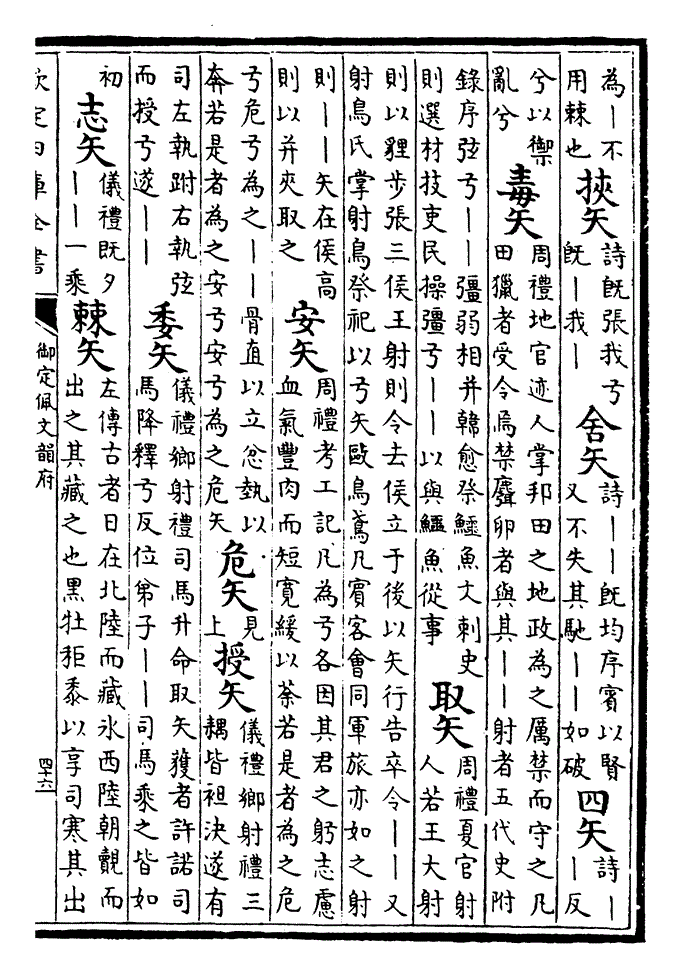 為｜不
用棘也
挾矢
詩既張我弓
既｜我｜
舍矢
詩｜｜既均序賓以賢
又不失其馳｜｜如破
四矢
詩｜
｜反
兮以禦
亂兮
毒矢
周禮地官迹人掌邦田之地政為之厲禁而守之凡
田獵者受令焉禁麛卵者與其｜｜射者五代史附
錄序弦弓｜｜彊弱相并韓愈祭鱷魚文刺史
則選材技吏民操彊弓｜｜以與鱷魚從事
取矢
周禮夏官射
人若王大射
則以貍步張三侯王射則令去侯立于後以矢行告卒令｜｜又
射鳥氏掌射鳥祭祀以弓矢歐鳥鳶凡賓客會同軍旅亦如之射
則｜｜矢在侯高
則以并夾取之
安矢
周禮考工記凡為弓各因其君之躬志慮
血氣豐肉而短寬緩以荼若是者為之危
弓危弓為之｜｜骨直以立忿執以
奔若是者為之安弓安弓為之危矢
危矢
見
上
授矢
儀禮鄉射禮三
耦皆袒決遂有
司左執跗右執弦
而授弓遂｜｜
委矢
儀禮鄉射禮司馬升命取矢獲者許諾司
馬降釋弓反位弟子｜｜司馬乘之皆如
初
志矢
儀禮既夕
｜｜一乘
棘矢
左傳古者日在北陸而藏冰西陸朝覿而
出之其藏之也黑牡秬黍以享司寒其出
欽定四庫全書
御定佩文韻府
四十六